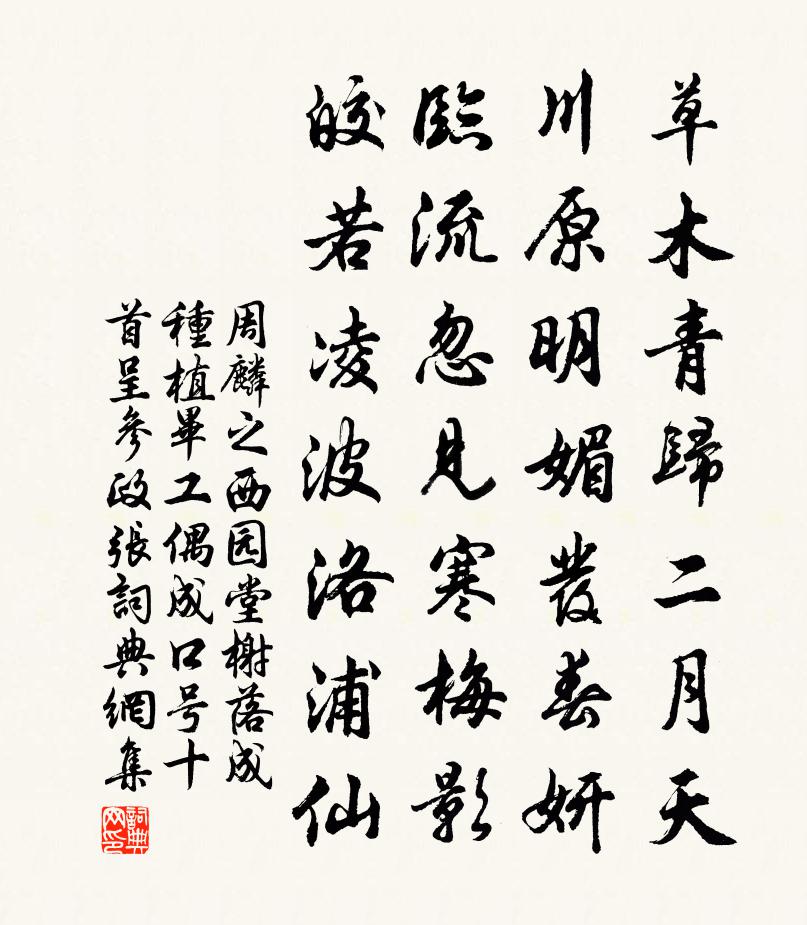 草木青歸二月天
川原明媚發春妍
臨流忽見寒梅影
皎若凌波洛浦仙
周麟之西园堂榭落成
種植畢工偶成口号十
首呈參政張詞典網集
詞典網印